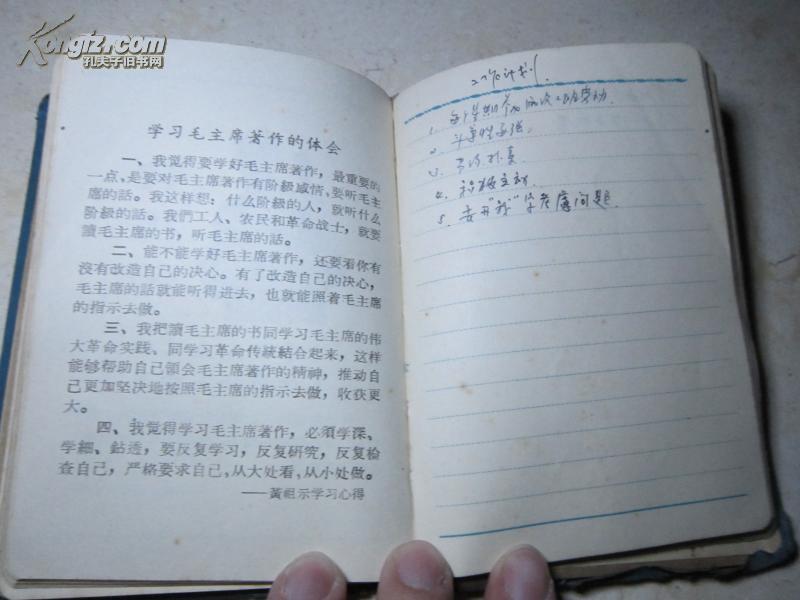 Kongfz.com
孔夫子旧书网
学习毛主席著作的体会
一、我觉得要学好毛主席著作，最重要的
一点，是要对毛主席著作有阶級感情，要听毛主
席的話。我这样想：什么阶級的人，就听什么
阶級的話。我們工人、农民和革命战士，就要
讀毛主席的书，听毛主席的話。
二、能不能学好毛主席著作，还要看你有
沒有改造自己的决心。有了改造自己的决心，
毛主席的話就能听得进去，也就能照着毛主席
的指示去做。
三、我把讀毛主席的书同学习毛主席的伟
大革命实践、同学习革命传統結合起来，这样
能够帮助自己領会毛主席著作的精神，推动自
己更加坚决地按照毛主席的指示去做，收获更
大。
四、我觉得学习毛主席著作，必須学深、
学細、鉆透，要反复学习，反复研究，反复檢
查自己，严格要求自己，从大处看，从小处做。
——黃祖示学习心得
计划
1. 每个星期参加 次 劳动
2. 斗争性
3.
4. 积极主动
5. 去考慮问题.